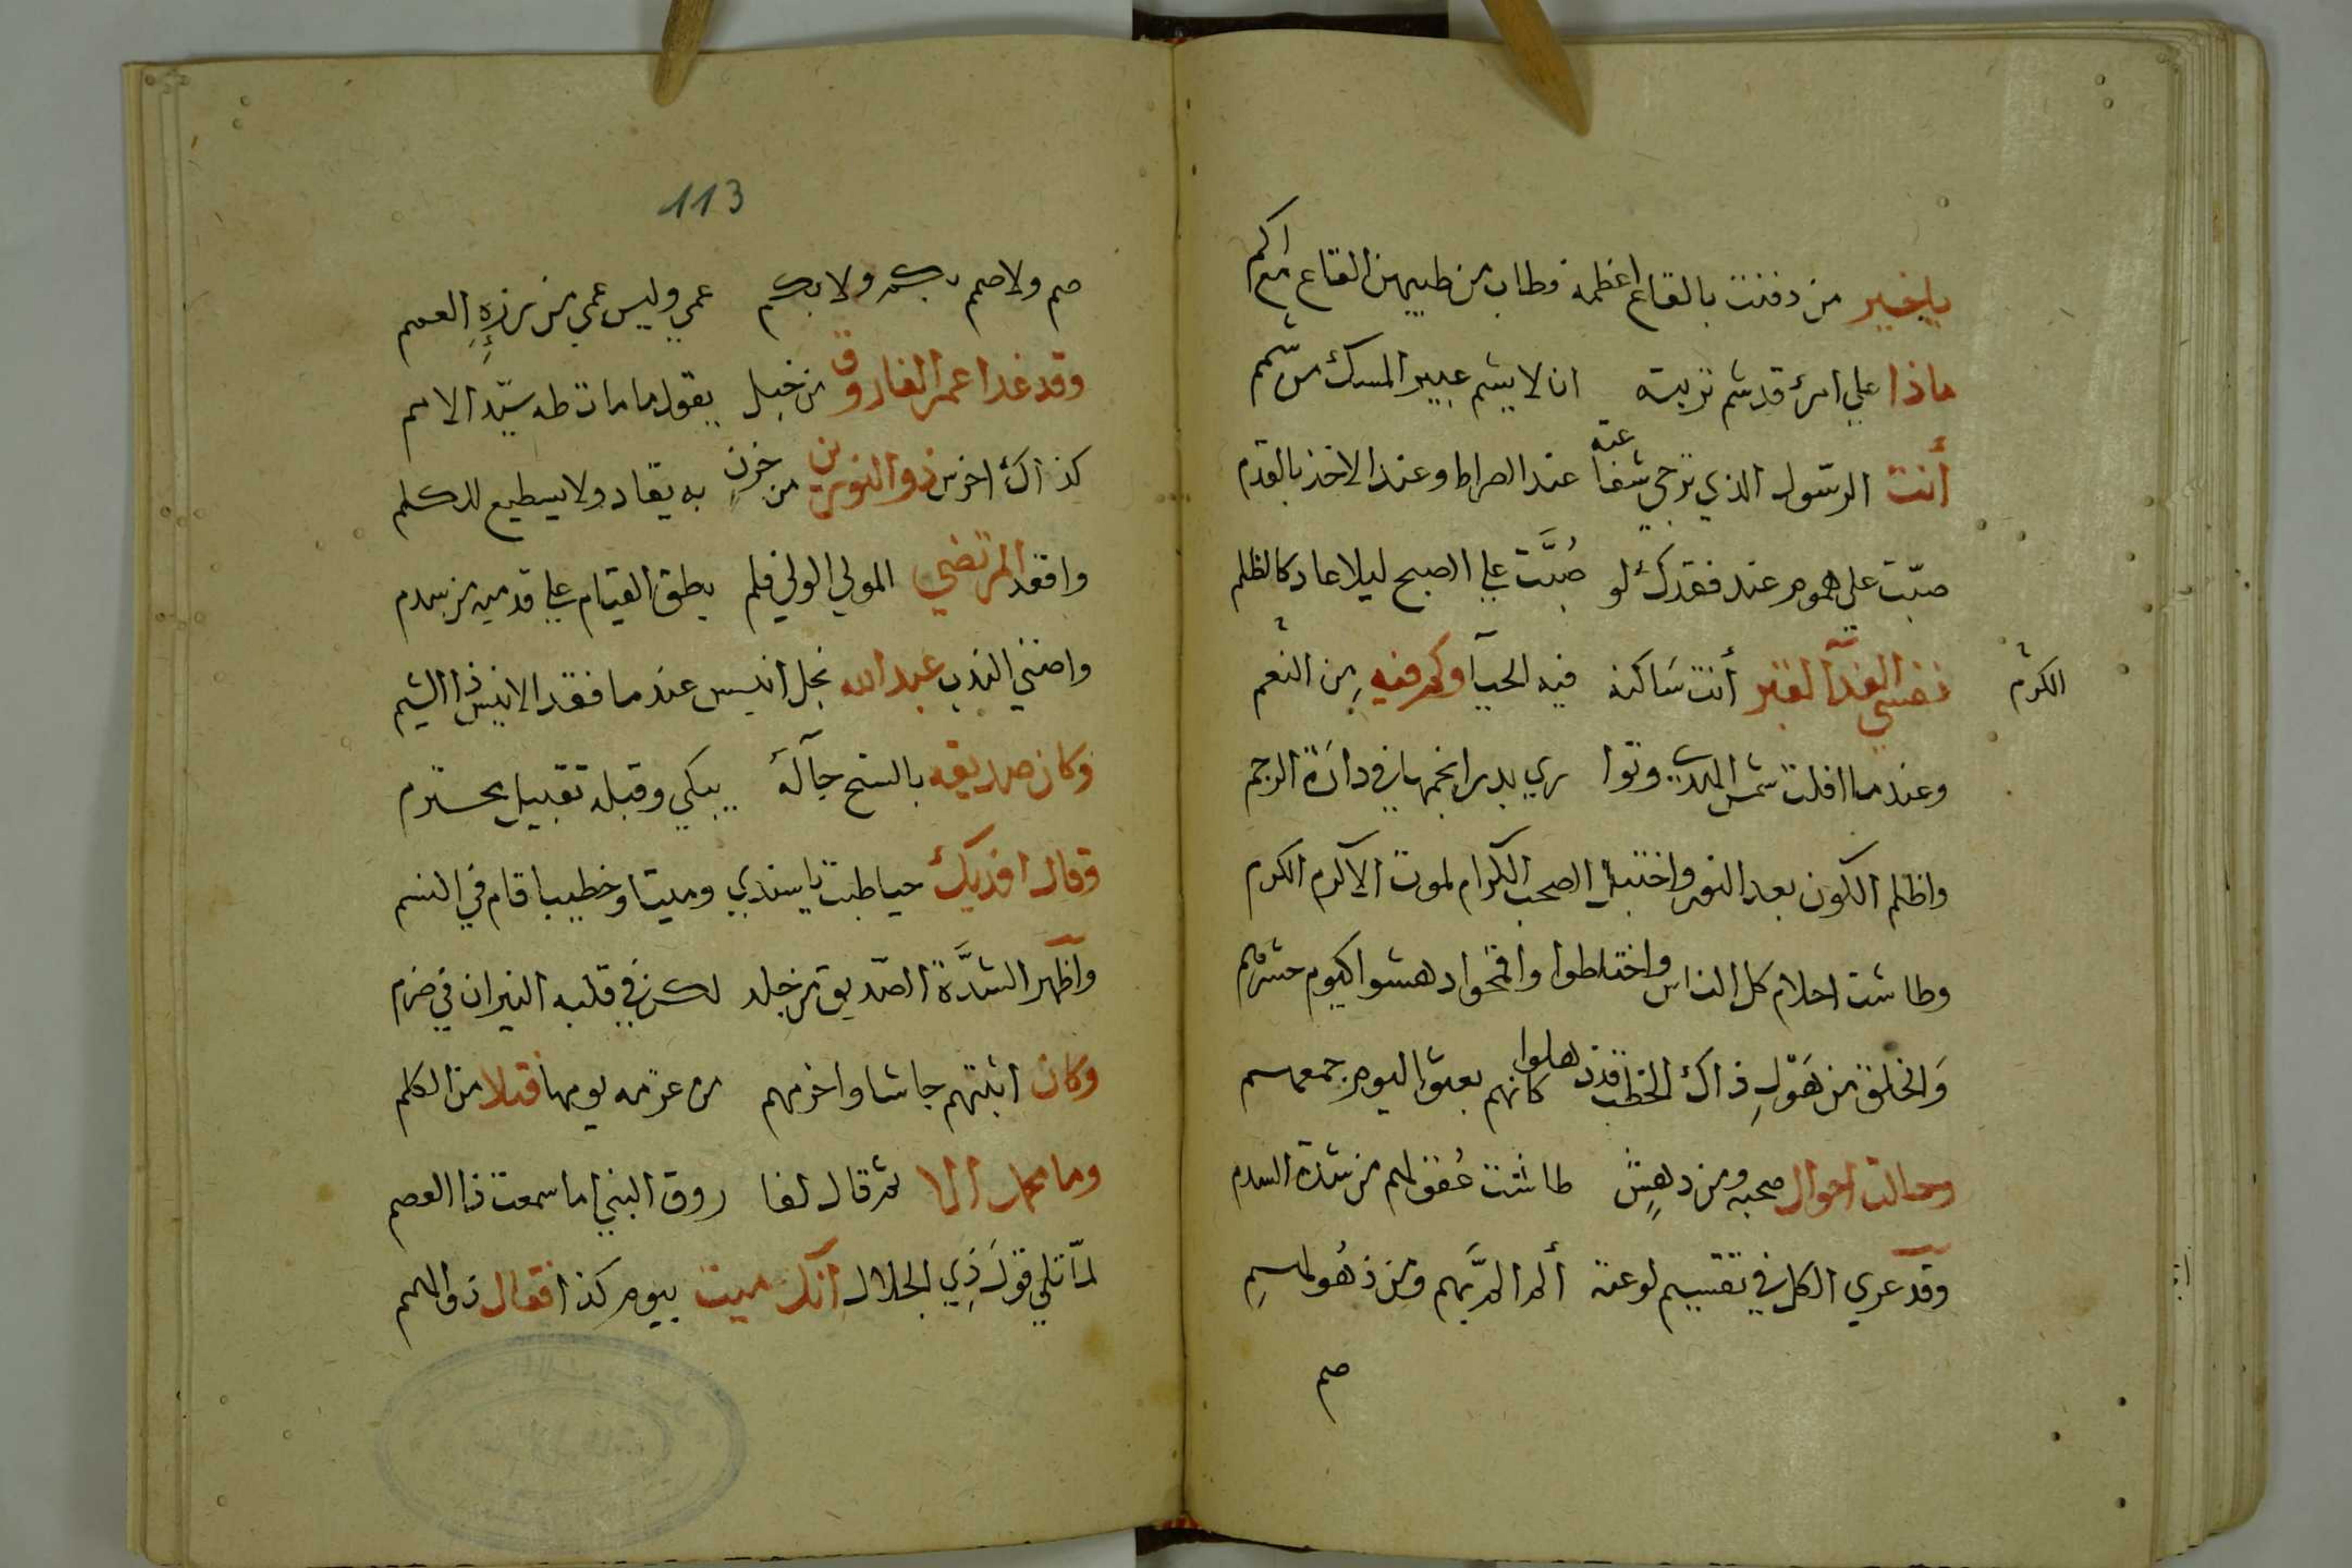 ياخير من دفنت بالقاع اعظمه فطاب من طيبهن القاع والاكم
ماذا علي امرئ قد شم تربته ان لا يشم عبير المسك من شمم
أنت الرّسول الذي ترجي شفاعته عند الصراط وعند الاخذ بالقدم
صبّت علي هموم عند فقدك لو صُبَّت علي الصبح ليلا عاد كالظلم
نفسي الفدآ لقبر أنت سَاكنه فيه الحيآ وكم فيه مِن النعم
الكرم
وعندما افلت شمس الهدي وتوا ري بدر انجمها في دائرة الرجم
واظلم الكون بعد النور واختبل الصحب الكرام لموت الاكرم الكرم
وطاشت احلام كل الناس واختلطوا وافحموا دهشوا كيوم حشرهم
وَالخلق من هَوْلِ ذاك الخطب قد ذهلوا كانهم بعثوا ليوم جمعهم
وحالت احوال صحبه ومن دهِش طاشت عُقولهم من شدة السدم
وقد عري الكل في تقسيم لوعته ألم المَّ بهم ومن ذهُولهم
صم
113
صم ولا صمم بكم ولا بكم عمي وليس عمي من رزءِهِ العمم
وقد غدا عمر الفاروق من خبل يقول ما مات طه سيّد الامم
كذاك اخرس ذو النورين من حزن به يقاد ولا يسطيع للكلم
واقعد المرتضي المولي الولي فلم يطق القيام علي قدميه من سدم
واضني الندب عبد الله نجل انيس عندما فقد الانيس ذا الشيم
وكان صديقه بالسنح جآلَهُ يبكي وقبله تقبيل محترم
وقال افديك حيا طبت يا سندي وميتا وخطيبا قام في النسم
واظهر الشدَّة الصّديق من جلد لكن في قلبه النيران في ضرم
وكان اثبتهم جاشا واخرمهم من عزمه يومها قتلا من الكلم
وما محمد الا ثم قال لفا روق النبي اما سمعت ذا العصم
لمّا تلي قولَ ذِي الجلال انك ميت بيوم كذا فقال ذو الهمم